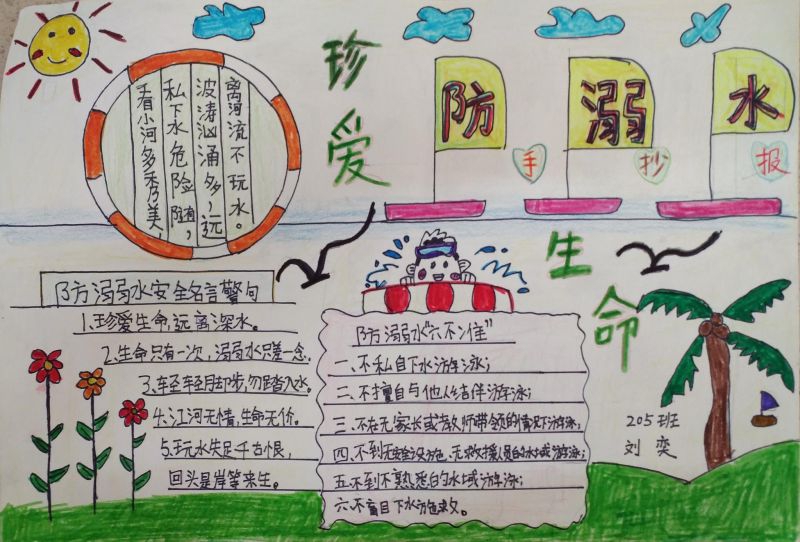 珍爱
生命
防溺水
手抄报
看小河多秀美,
私下水危险随,
波涛汹涌多,远
离河流不玩水。
防溺水安全名言警句
1.珍爱生命,远离深水。
2.生命只有一次,溺水只差一念.
3.轻轻脚步,勿踏入水。
4.江河无情,生命无价。
5.玩水失足千古恨,
回头是岸等来生。
防溺水“六不准”
一、不私自下水游泳;
二、不擅自与他人结伴游泳;
三、不在无家长或教师带领的情况下游泳;
四、不到无安全设施、无救援人员的水域游泳;
五、不到不熟悉的水域游泳;
六、不盲目下水施救。
205班
刘奕